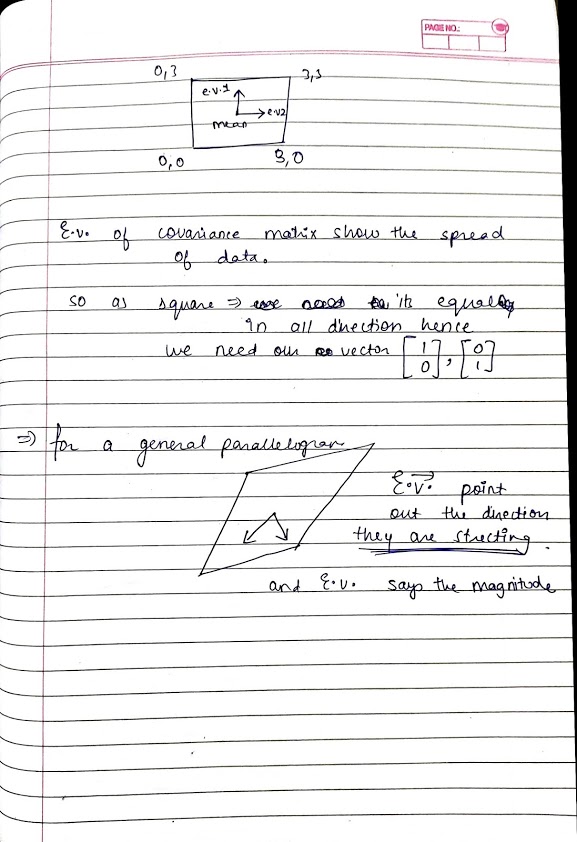 PAGE NO.:
0,3 3,3
e.v.1
e.v2
mean
0,0 3,0
E.v. of covariance matrix show the spread
of data.
so as square ⇒ its equal
in all direction hence
we need our vector [1 0], [0 1]
⇒ for a general parallelogram
E.v. point
out the direction
they are strecting.
and E.v. says the magnitude